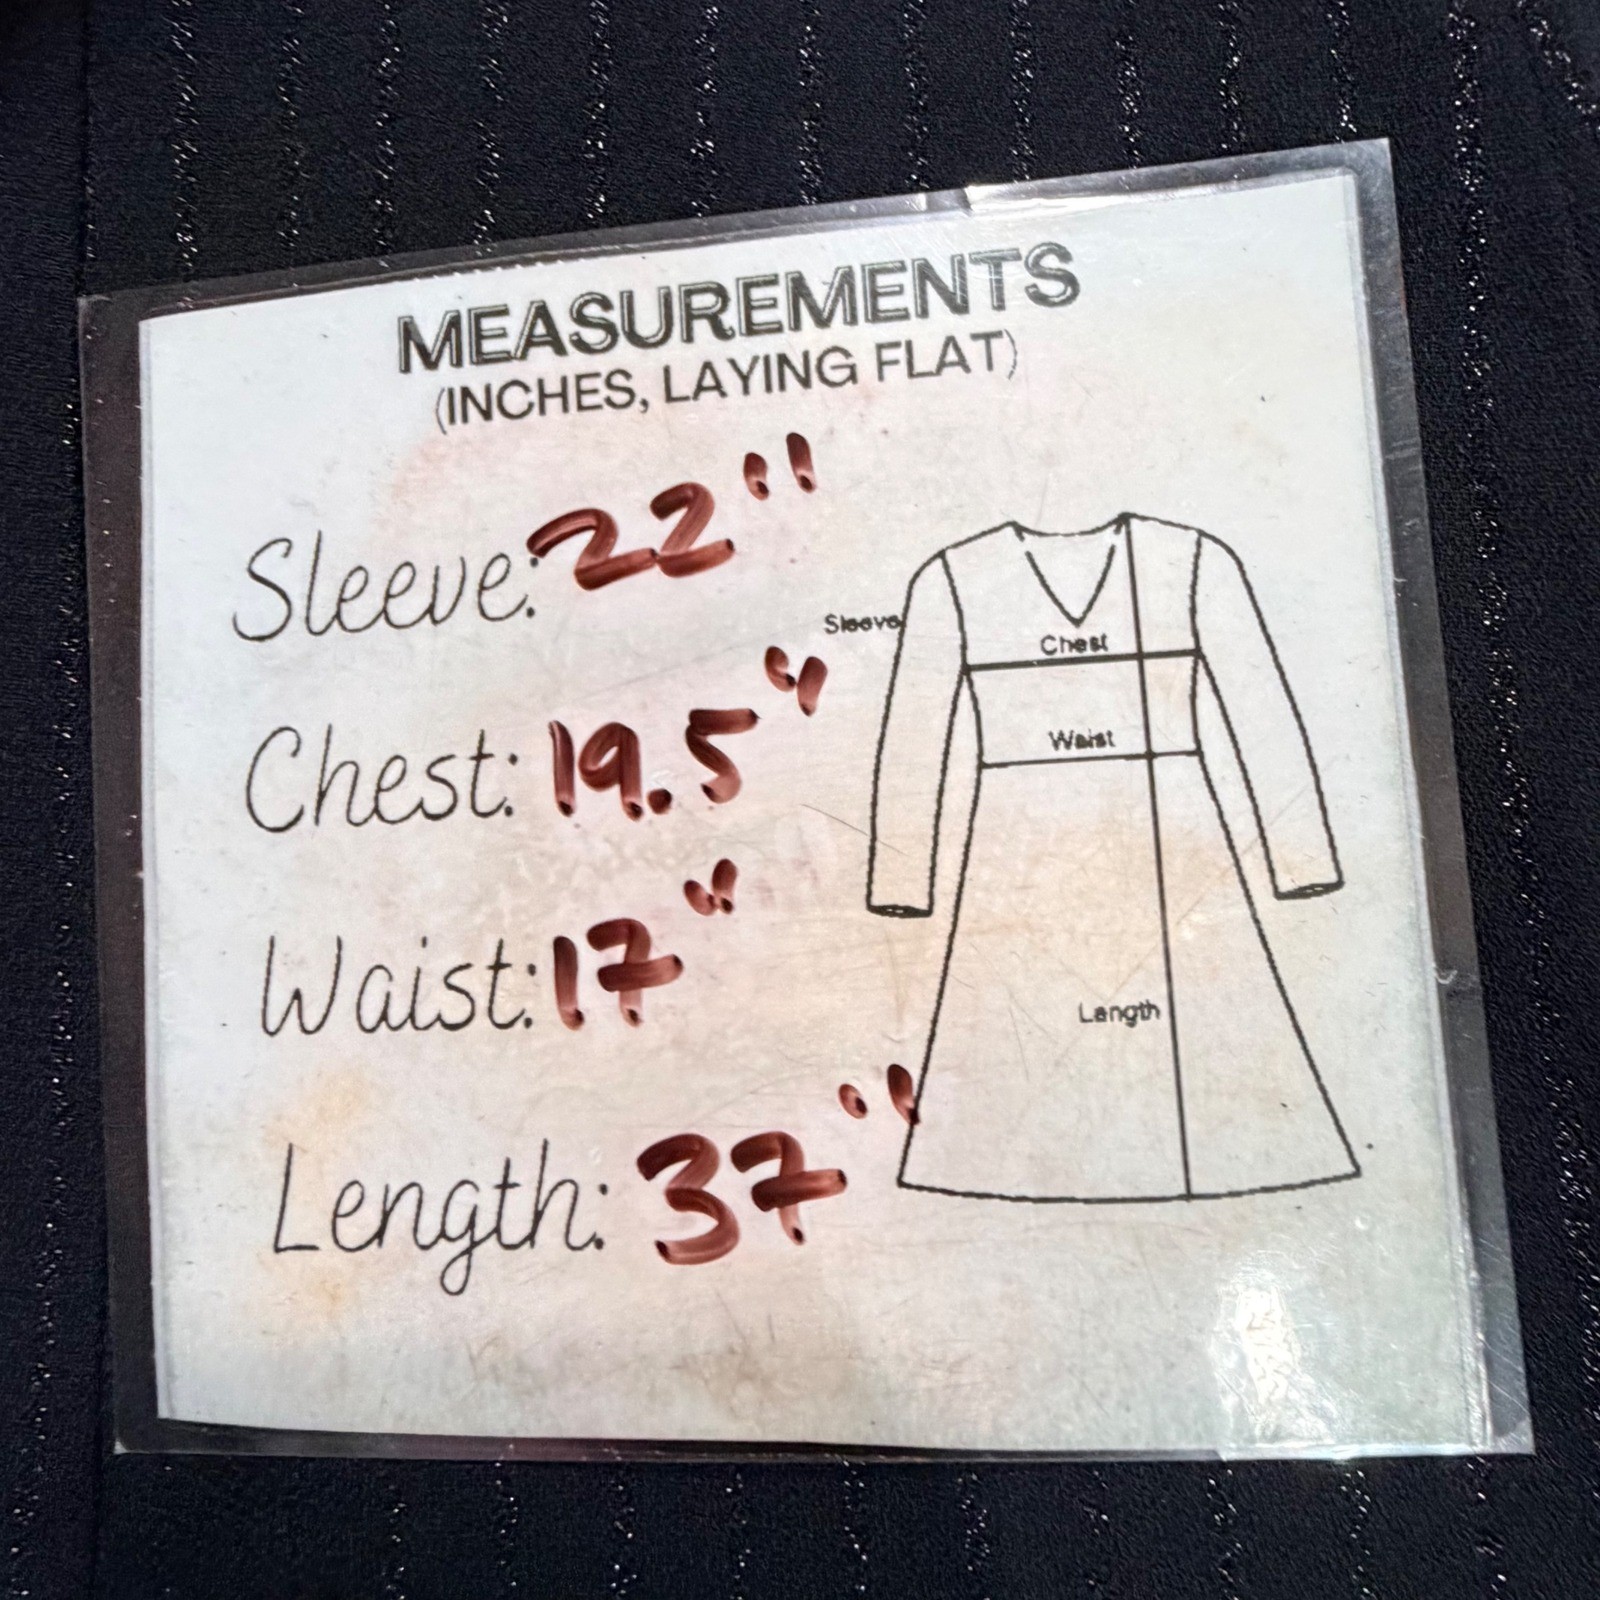 MEASUREMENTS
(INCHES, LAYING FLAT)
Sleeve: 22"
Chest: 19.5"
Waist: 17"
Length: 37"
Sleeve
Chest
Waist
Length